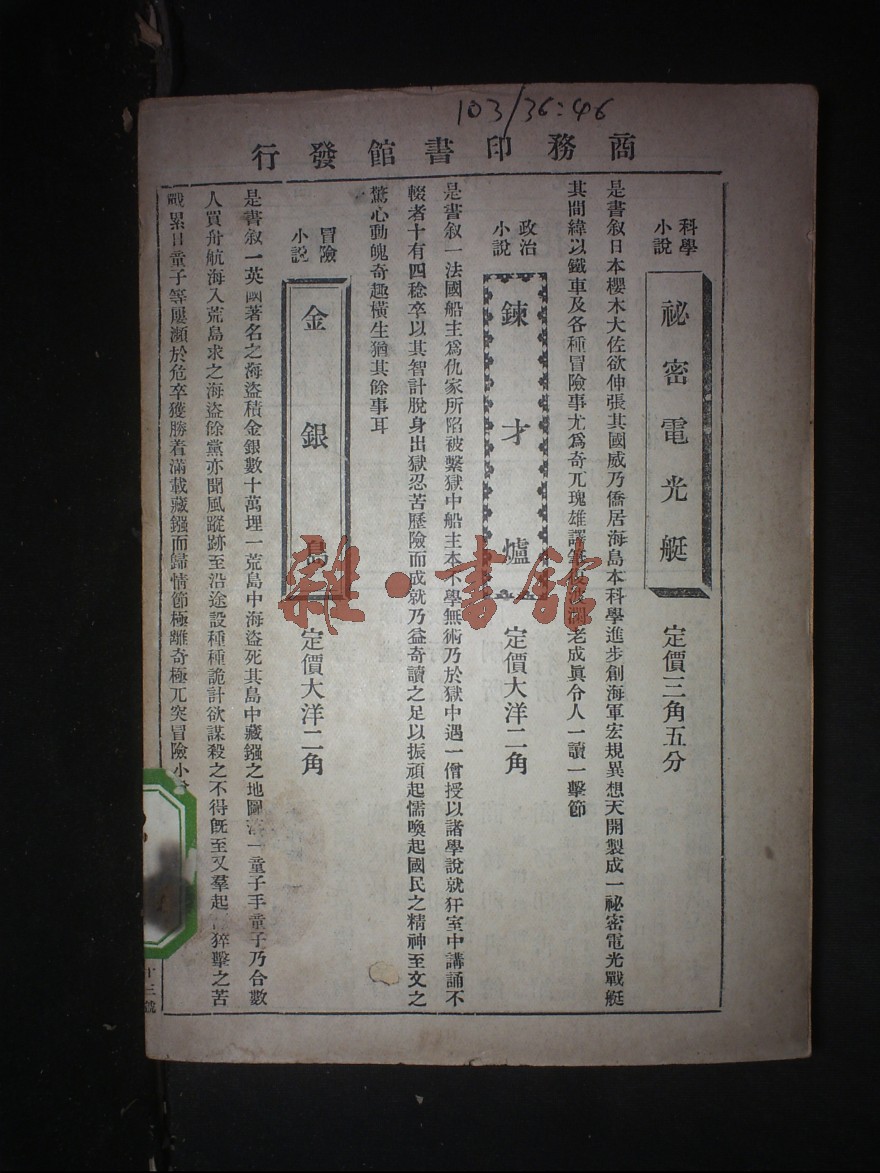 103/36:46
商務印書館發行
科學
小說
祕密電光艇
定價三角五分
是書叙日本櫻木大佐欲伸張其國威乃僑居海島本科學進步創海軍宏規異想天開製成一祕密電光戰艇
其間緯以鐵車及各種冒險事尤爲奇兀瑰雄譯筆老成眞令人一讀一擊節
政治
小說
鍊才爐
定價大洋二角
是書叙一法國船主爲仇家所陷被繫獄中船主本不學無術乃於獄中遇一僧授以諸學說就犴室中講誦不
輟者十有四稔卒以其智計脫身出獄忍苦歷險而成就乃益奇讀之足以振頑起懦喚起國民之精神至文之
驚心動魄奇趣橫生猶其餘事耳
冒險
小說
金銀島
定價大洋二角
是書叙一英國著名之海盜積金銀數十萬埋一荒島中海盜死其島中藏鏹之地圖一童子手童子乃合數
人買舟航海入荒島求之海盜餘黨亦聞風蹤跡至沿途設種種詭計欲謀殺之不得旣至又羣起猝擊之苦
戰累日童子等屢瀕於危卒獲勝着滿載藏鏹而歸情節極離奇極兀突冒險小
十三號
雜·書館